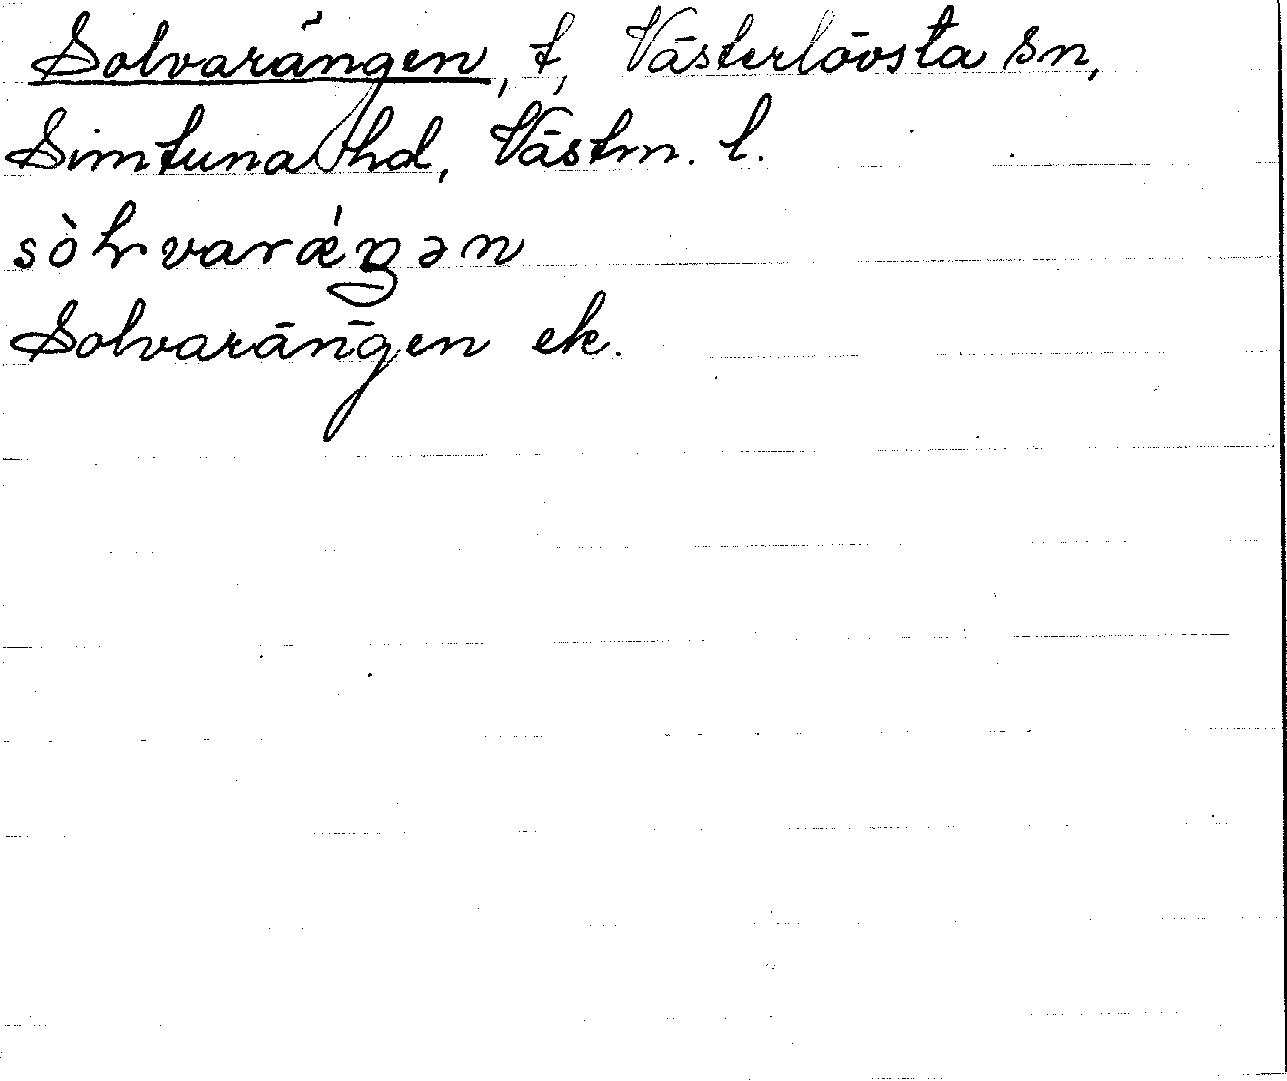 Solvarängen, t, Västerlövsta sn,
Simtuna hd, Västm. l.
sòlvarǽŋən
Solvarängen ek.